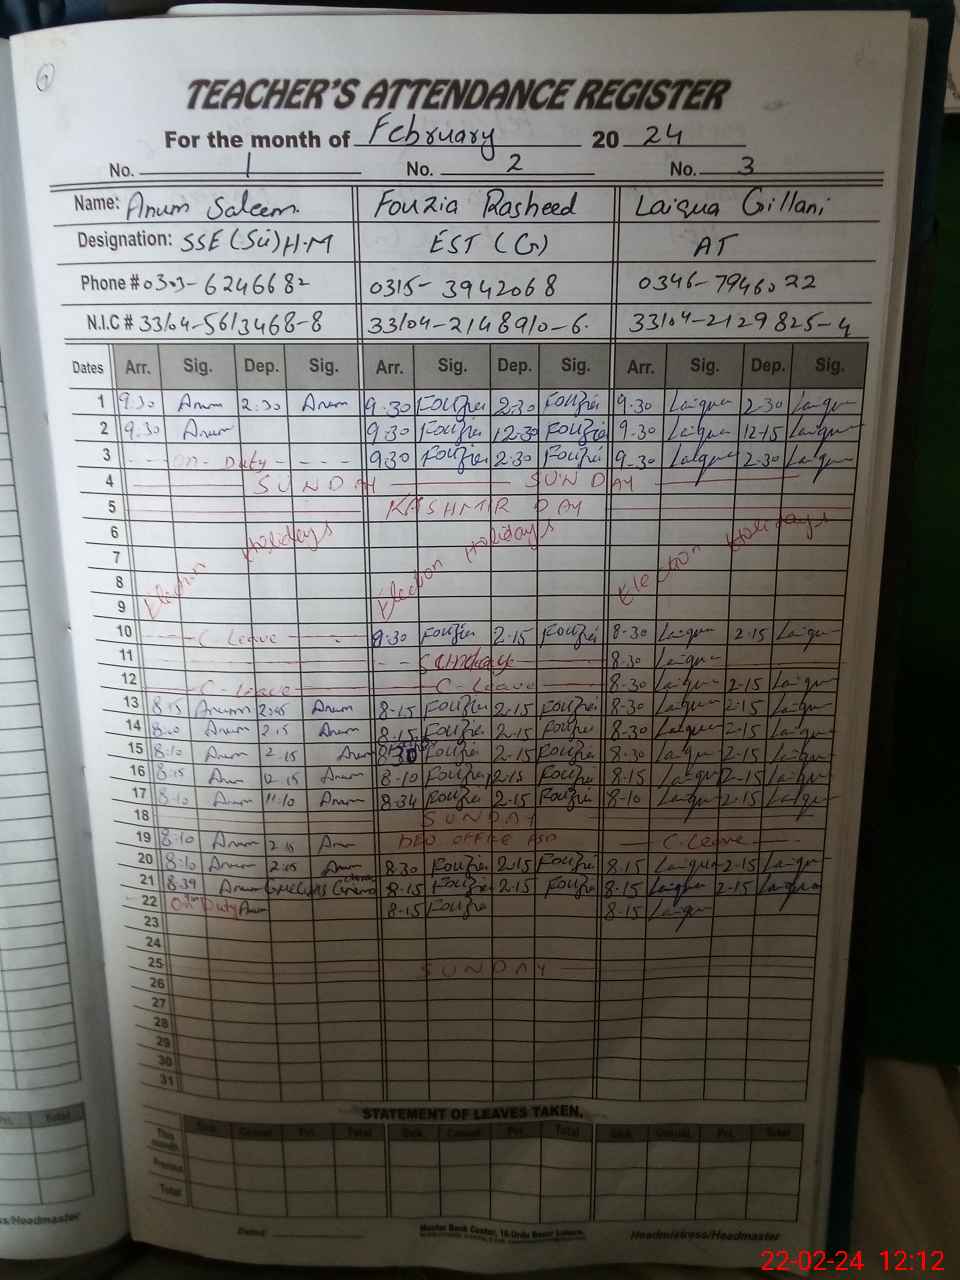 TEACHER'S ATTENDANCE REGISTER
For the month of February 20 24
No. 1 No. 2 No. 3
Name: Anum Saleem. Fouzia Rasheed Laiqua Gillani
Designation: SSE (Sci) H.M EST (G) AT
Phone # 0303-6246682 0315-3942068 0346-7946022
N.I.C # 33104-5613468-8 33104-2148910-6. 33104-2129825-4
Dates Arr. Sig. Dep. Sig. Arr. Sig. Dep. Sig. Arr. Sig. Dep. Sig.
1 9.30 Anum 2.30 Anum 9.30 Fouzia 2.30 Fouzia 9.30 Laiqua 2.30 Laiqua
2 9.30 Anum 9.30 Fouzia 12.30 Fouzia 9.30 Laiqua 12.15 Laiqua
3 on-Duty 9.30 Fouzia 2.30 Fouzia 9.30 Laiqua 2.30 Laiqua
4 SUNDAY SUNDAY
5 KASHMIR DAY
6 Election Holidays Election Holidays Election Holidays
7
8
9
10 C Leave 9.30 Fouzia 2.15 Fouzia 8.30 Laiqua 2.15 Laiqua
11 Sunday 8.30 Laiqua
12 C-Leave C-Leave 8.30 Laiqua 2.15 Laiqua
13 8.15 Anum Anum 8.15 Fouzia 2.15 Fouzia 8.30 Laiqua 2.15 Laiqua
14 Anum 2.15 Anum 8.15 Fouzia 2.15 Fouzia 8.30 Laiqua 2.15 Laiqua
15 8.10 Anum 2.15 Anum 8.30 Fouzia 2.15 Fouzia 8.30 Laiqua 2.15 Laiqua
16 8.15 Anum 12.15 Anum 8.10 Fouzia 12.15 Fouzia 8.15 Laiqua 12.15 Laiqua
17 8.10 Anum 11.10 Anum 8.34 Fouzia 2.15 Fouzia 8.10 Laiqua 2.15 Laiqua
18 SUNDAY
19 8.10 Anum 2.15 Anum DEO OFFICE FSD C.Leave
20 8.10 Anum 2.15 Anum 8.30 Fouzia 2.15 Fouzia 8.15 Laiqua 2.15 Laiqua
21 8.39 Anum 8.15 Fouzia 2.15 Fouzia 8.15 Laiqua 2.15 Laiqua
22 On Duty Anum 8.15 Fouzia 8.15 Laiqua
23
24
25 SUNDAY
26
27
28
29
30
31
STATEMENT OF LEAVES TAKEN.
This month Sick Casual Pri. Total Sick Casual Pri. Total Sick Casual Pri. Total
Previous
Total
Dated Master Book Center, 16-Urdu Bazar Lahore. Headmistress/Headmaster
Pri. Total
ss/Headmaster
22-02-24 12:12